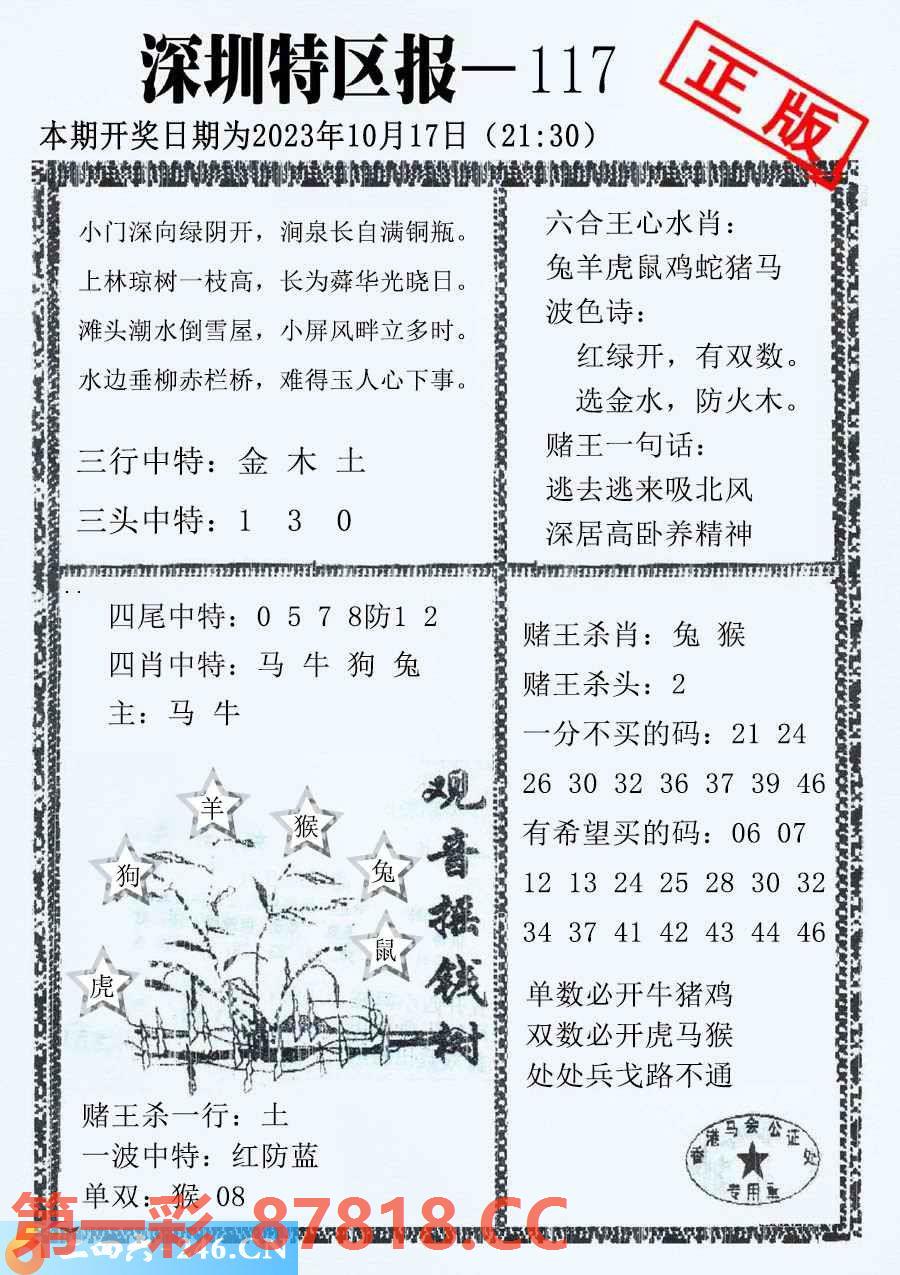 深圳特区报—117
正版
本期开奖日期为2023年10月17日（21:30）
小门深向绿阴开，涧泉长自满铜瓶。
上林琼树一枝高，长为蕣华光晓日。
滩头潮水倒雪屋，小屏风畔立多时。
水边垂柳赤栏桥，难得玉人心下事。
三行中特：金 木 土
三头中特：1 3 0
六合王心水肖：
兔羊虎鼠鸡蛇猪马
波色诗：
红绿开，有双数。
选金水，防火木。
赌王一句话：
逃去逃来吸北风
深居高卧养精神
四尾中特：0 5 7 8防1 2
四肖中特：马 牛 狗 兔
主：马 牛
羊
猴
狗
兔
鼠
虎
观音摇钱树
赌王杀一行：土
一波中特：红防蓝
单双：猴 08
赌王杀肖：兔 猴
赌王杀头：2
一分不买的码：21 24
26 30 32 36 37 39 46
有希望买的码：06 07
12 13 24 25 28 30 32
34 37 41 42 43 44 46
单数必开牛猪鸡
双数必开虎马猴
处处兵戈路不通
香港马会公证处
专用章
第一彩 87818.CC
246.CN